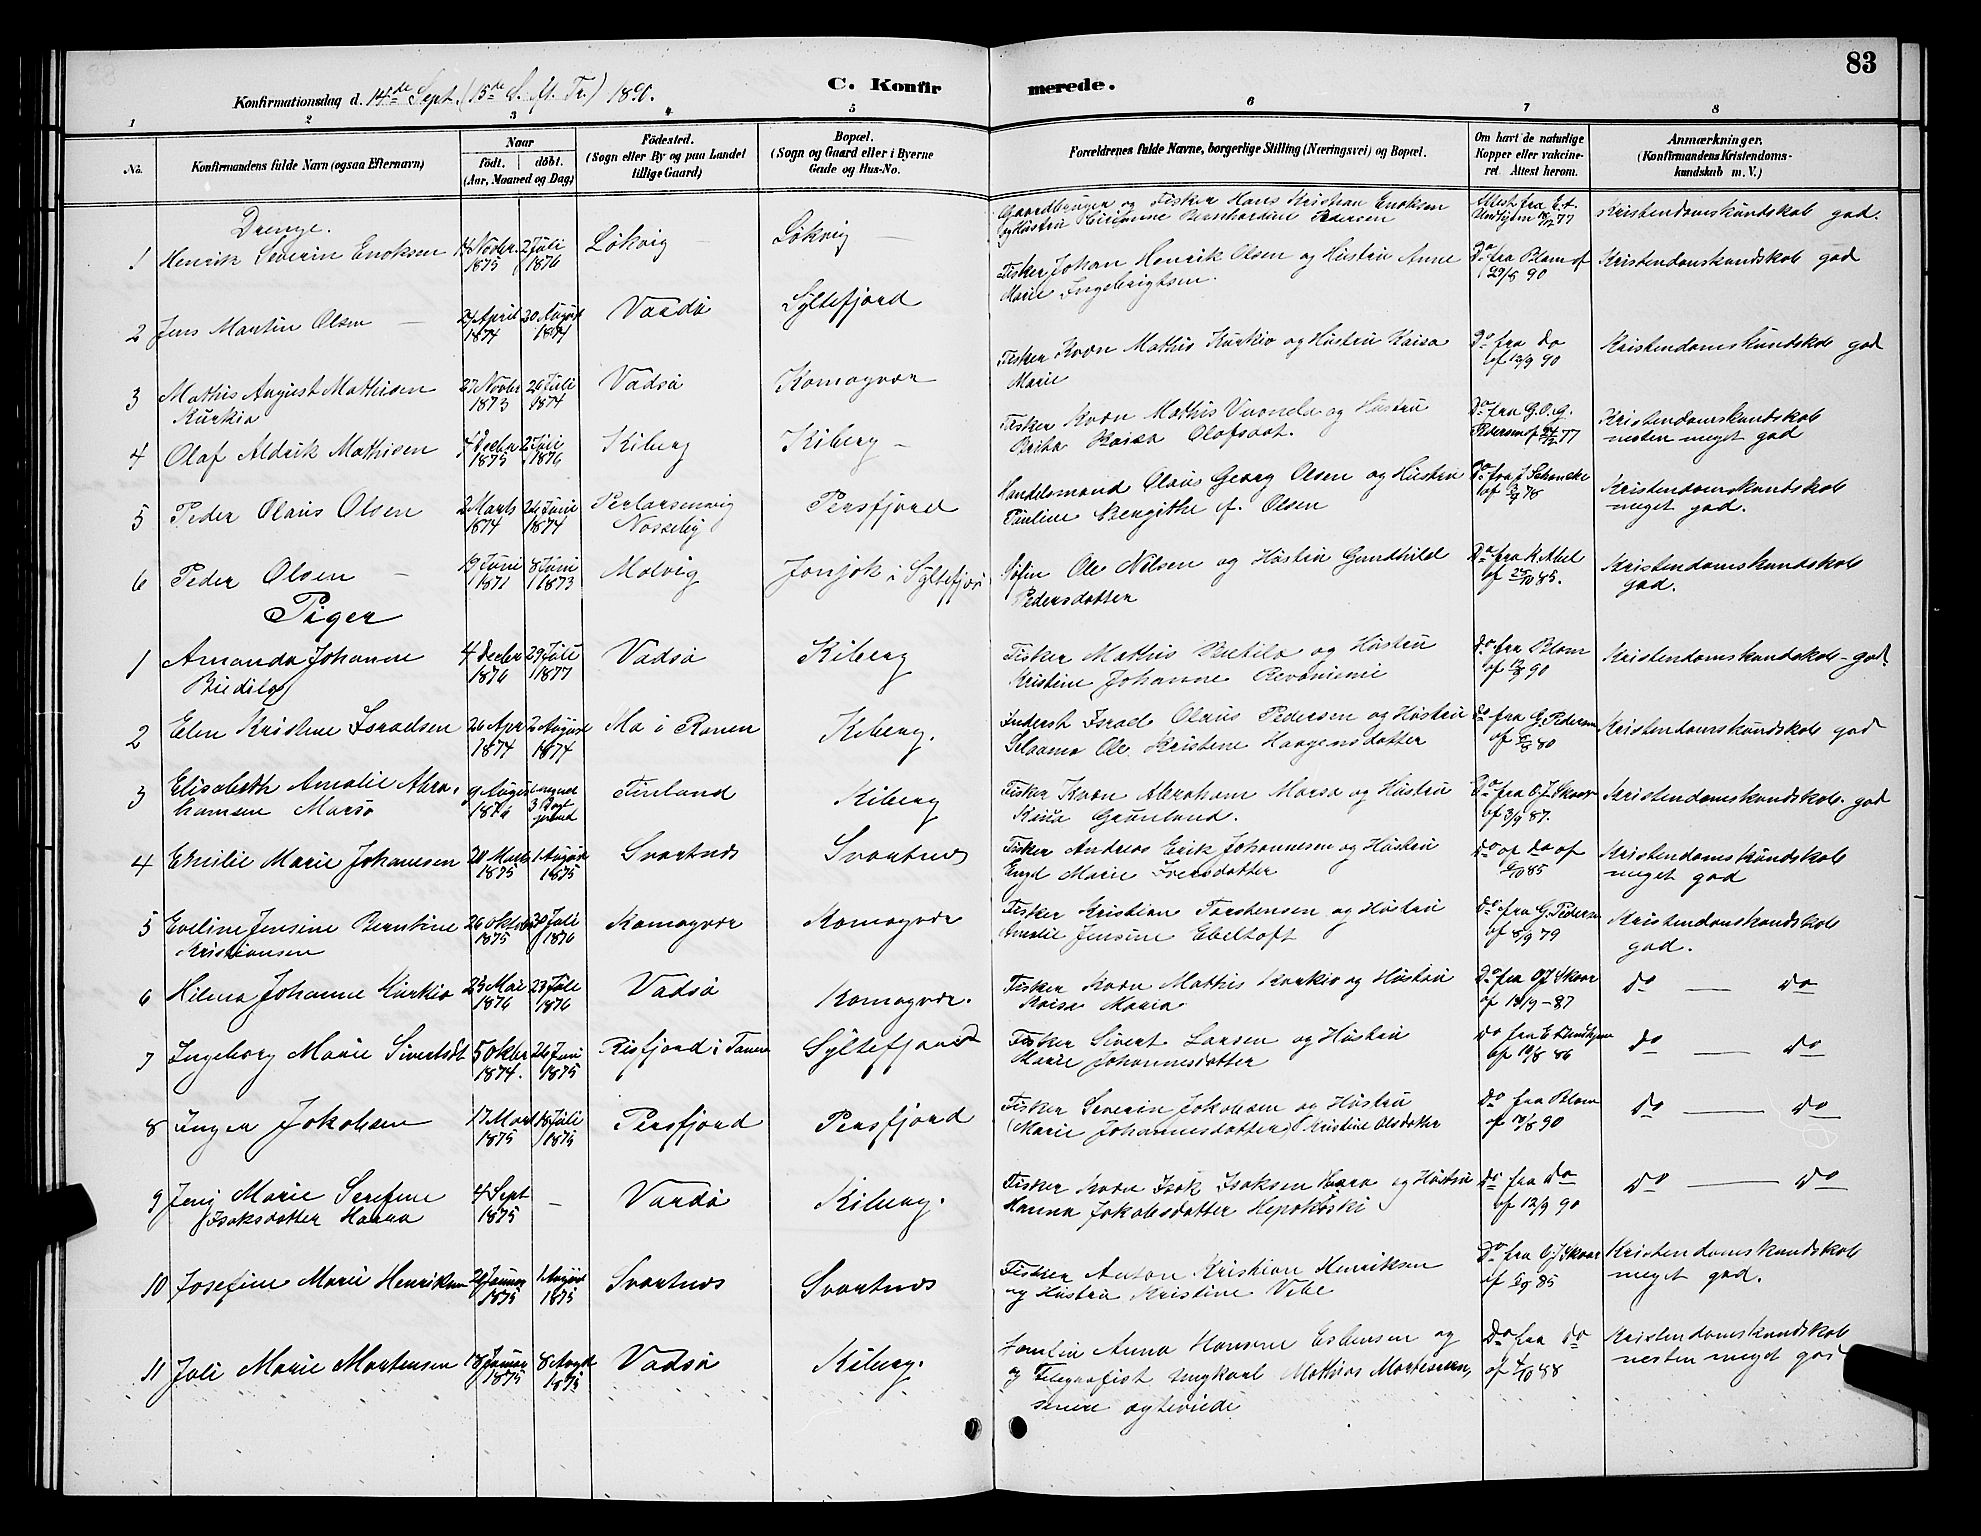 83
Konfirmationsdag d. 14de Sept. (15de S. f. Tr.) 1890.
C. Konfirmerede.
1 2 3 4 5 6 7 8
No.
Konfirmandens fulde Navn (ogsaa Efternavn)
Naar
født. døbt.
(Aar, Maaned og Dag.)
Fødested.
(Sogn eller By og paa Landet
tillige Gaard)
Bopæl.
(Sogn og Gaard eller i Byerne
Gade og Hus-No.
Forældrenes fulde Navne, borgerlige Stilling (Næringsvei) og Bopæl.
Om havt de naturlige
Kopper eller vakcine-
ret. Attest herom.
Anmærkninger.
(Konfirmandens Kristendoms-
kundskab m. V.)
Drenge.
1 Henrik Severin Enoksen
14 Novbr. 1875
2 Juli 1876
Løkvig
Løkvig
Gaardbruger og Fisker Hans Kristian Enoksen
og Hustru Bernhardine Pedersen
Attest fra
Kristendomskundskab god.
2 Jens Martin Olsen
27 April 1874
30 August 1874
Vardø
Syltefjord
Fisker Johan Henrik Olsen og Hustru Anne
Marie Ingebrigtsen.
Do fra Blom af
29/8 90
Kristendomskundskab god
3 Mathis August Mathisen
Kurkio
27 Novbr 1873
26 Juli 1874
Vadsø
Komagvær
Fisker Kvæn Mathis Kurkio og Hustru Kaisa
Marie
Do fra do
af 12/9 90
Kristendomskundskab god
4 Olaf Aldrik Mathisen
4 Decbr 1875
2 Juli 1876
Kiberg
Kiberg
Fisker Kvæn Mathis og Hustru
Brita Kaisa Olafsdat.
Do fra G.O.G.
Pedersen af 24/2 77
Kristendomskundskab
nesten meget god
5 Peder Olaus Olsen
2 Marts 1874
24 Juni 1874
Perlarsenvig
Nesseby
Persfjord
Handelsmand Olaus Georg Olsen og Hustru
Pauline Bergithe f. Olsen
Do fra J Schancke
af 3/9 78
Kristendomskundskab
meget god.
6 Peder Olsen
19 Juni 1871
8 Juni 1873
Molvig
Jonjok i Syltefjor
Søfin Ole Nilsen og Hustru Gundhild
Pedersdatter
Do fra K Abel
af 25/10 85.
Kristendomskundskab
god.
Piger
1 Amanda Johanne
4 Decbr 1876
29 Juli 1877
Vadsø
Kiberg
Fisker Mathis Beetila og Hustru
Kristine Johanne
Do fra Blom
af 12/9 90
Kristendomskundskab god.
2 Elen Kristine Israelsen
26 Apr 1874
2 August 1874
Mo i Ranen
Kiberg.
Inderst Israel Olaus Pedersen og Hustru
Ole Kristene Haagensdatter
Do fra G. Pedersen
Kristendomskundskab god
3 Elisabeth Amalie Abra-
hamsen Marsø
9 August 1874
Finland
Kiberg
Fisker Kvæn Abraham Marsø og Hustru
Kaisa Grønland.
Do fra O J Skaar
af 3/9 87.
Kristendomskundskab. god
4 Emilie Marie Johanesen
20 Mart 1875
1 August 1875
Svartnes
Svartnes
Fisker Andreas Erik Johannesen og Hustru
Engel Marie Iversdatter
do af do af
6/10 85
Kristendomskundskab
meget god
5 Eveline Jensine Berntine
Kristiansen
26 oktbr 1875
30 Juli 1876
Komagvær
Komagvær
Fisker Kristian Torstensen og Hustru
Amalie Jensine Ebeltoft
do fra G. Pedersen
af 8/9 79
Kristendomskundskab
god.
6 Hilma Johanne Kurkio
23 Mai 1876
23 Juli 1876
Vadsø
Komagvær.
Fisker Kvæn Mathis Kurkio og Hustru
Kaisa Maria
Do fra O J Skaar
af 13/9 - 87
do — do
7 Ingeborg Marie Sivertsdt
5 Oktbr 1874.
24 Juni 1875
Risfjord i Tanen
Syltefjord
Fisker Sivert Larsen og Hustru
Marie Johannesdatter
do fra E. Undhjem
af 10/8 86
do — do
8 Inger Jakobsen
17 Mart 1875
18 Juli 1875
Persfjord
Persfjord
Fisker Severin Jakobsen og Hustru
(Marie Johannesdatter) Kristine Olsdatter
Do fra Blom
af 10/8 90
do — do
9 Jenj Marie Serefine
Isaksdatter Haara
4 Sept 1875
—
Vardø
Kiberg.
Fisker Kvæn Isak Isaksen Haara og Hustru
Hanna Jakobsdatter Hepokøski
do fra do
af 12/9 90
do — do
10 Josefine Marie Henriksen
24 Januar 1875
1 August 1875
Svartnes
Svartnes
Fisker Anton Kristian Henriksen
og Hustru Kristine Vibe
Do fra O J Skaar
af 6/9 85
Kristendomskundskab
meget god.
11 Juli Marie Martensen
18 Januar 1875
8 Augst 1875
Vadsø
Kiberg.
Anna Hansene Esbensen og
og Telegrafist Ungkarl Mathias Mortensen,
senere ægteviede
Do fra do
af 4/10 88
Kristendomskundskab
nesten meget god